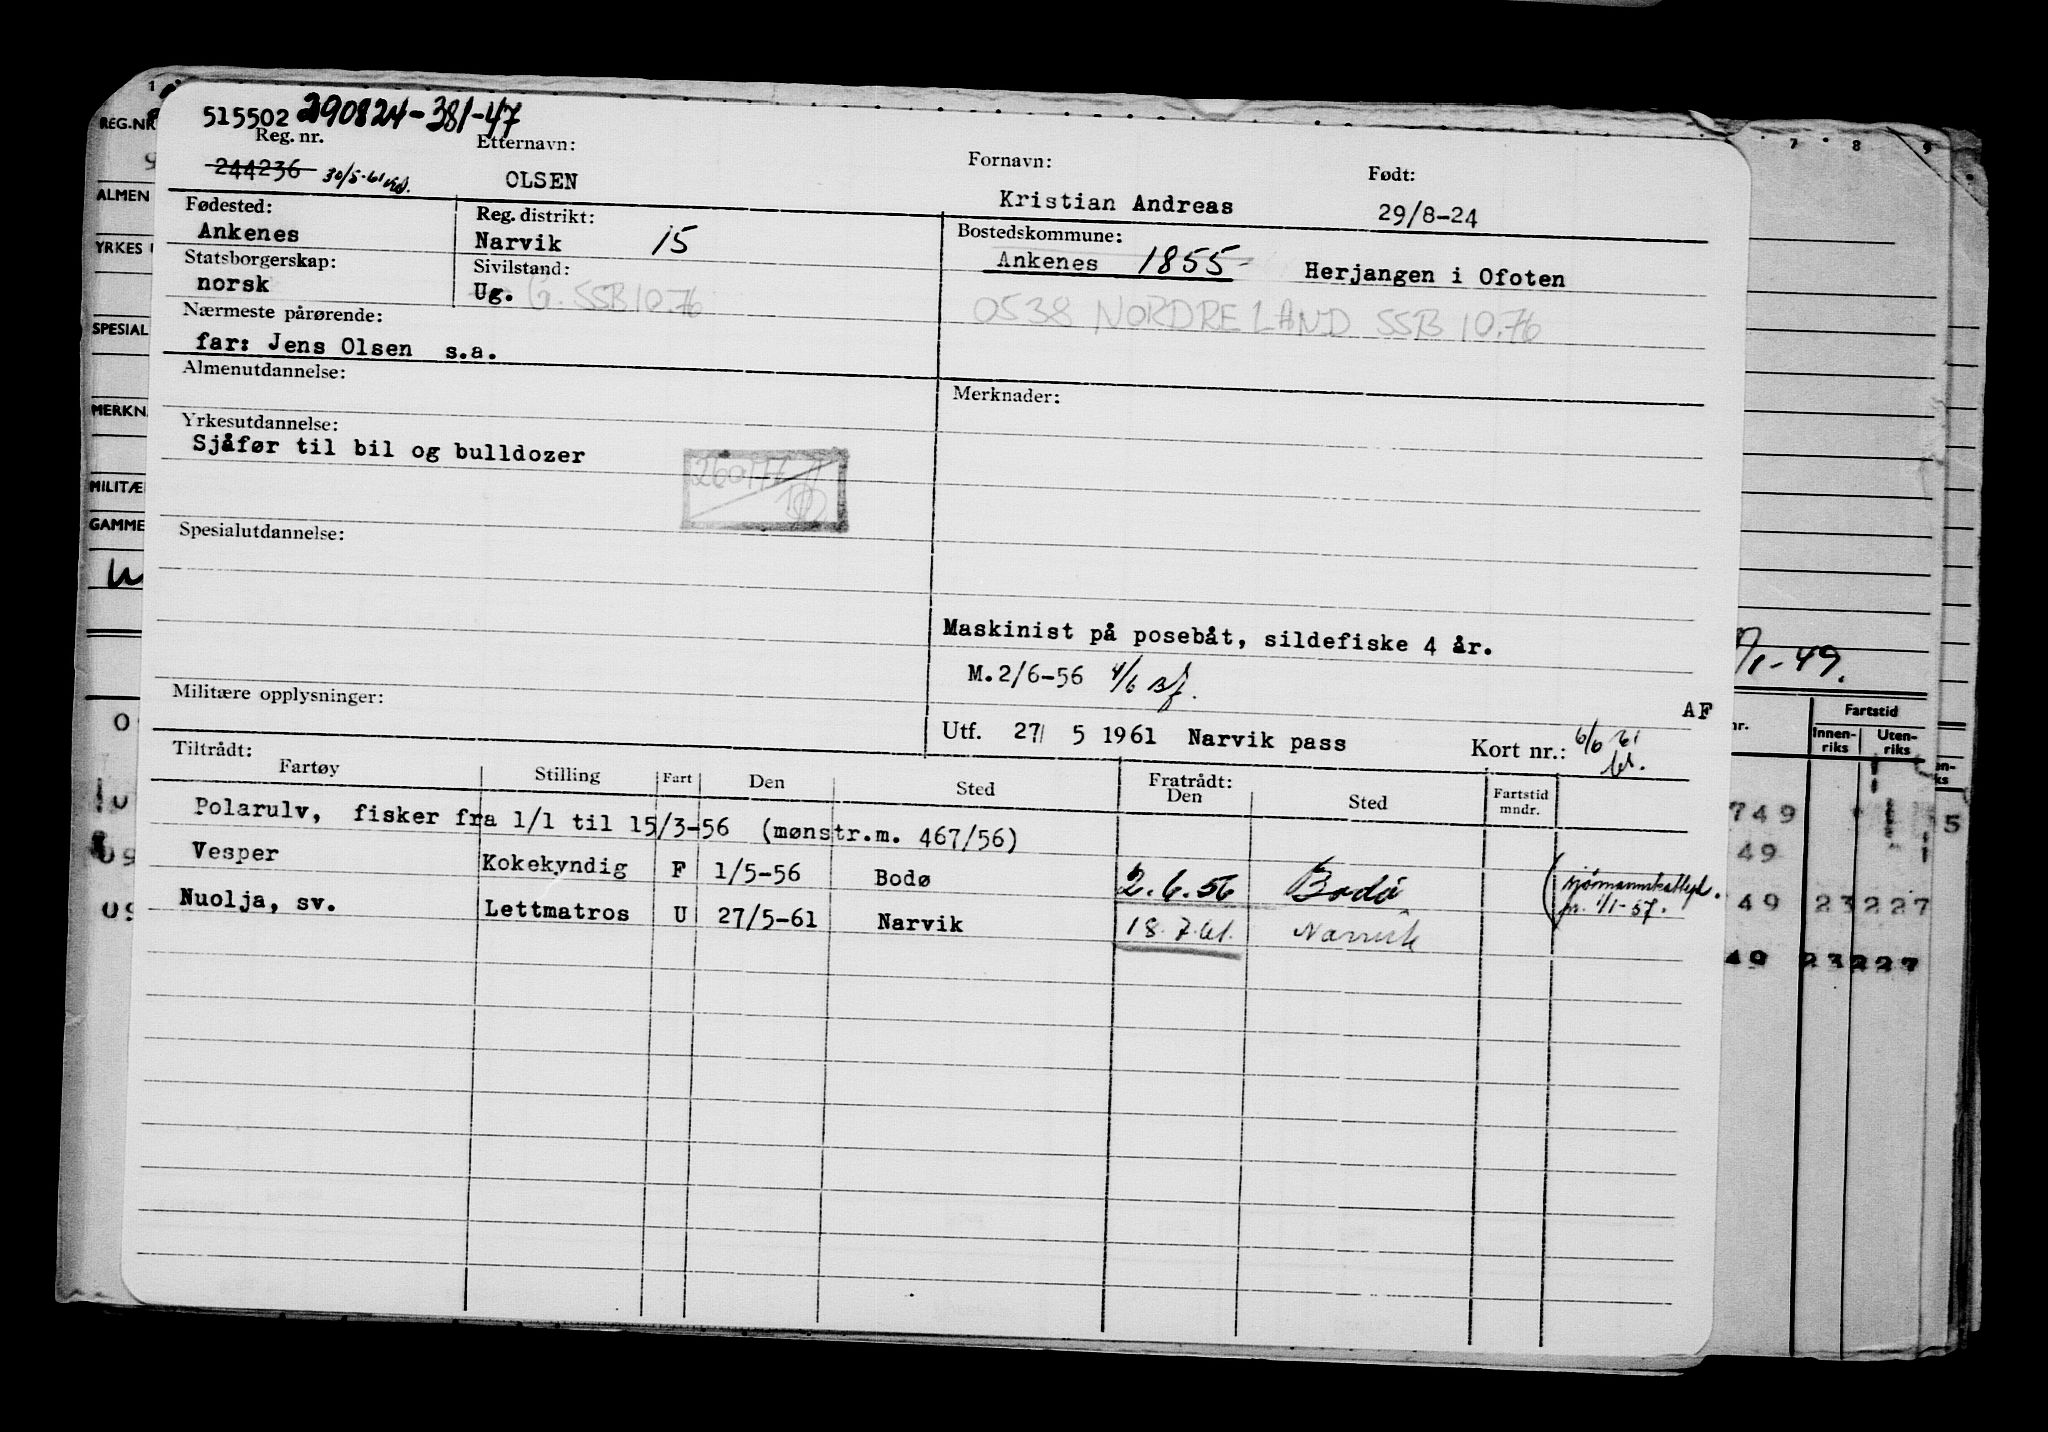 515502 290824-381-47
Reg. nr. Etternavn: Fornavn: Født:
244236 30/5-61 OLSEN Kristian Andreas 29/8-24
Fødested: Reg. distrikt: Bostedskommune:
Ankenes Narvik 15 Ankenes 1855 Herjangen i Ofoten
Statsborgerskap: Sivilstand:
norsk Ug. G. SSB 10.76 0538 NORDRE LAND SSB 10.76
Nærmeste pårørende:
far: Jens Olsen s.a.
Almenutdannelse: Merknader:
Yrkesutdannelse:
Sjåfør til bil og bulldozer
Spesialutdannelse:
Maskinist på posebåt, sildefiske 4 år.
M.2/6-56 4/6
Militære opplysninger: AF
Utf. 27 5 1961 Narvik pass Kort nr.: 6/6 61
Tiltrådt: Fratrådt:
Fartøy Stilling Fart Den Sted Den Sted Fartstid mndr.
Polarulv, fisker fra 1/1 til 15/3-56 (mønstr.m. 467/56)
Vesper Kokekyndig F 1/5-56 Bodø 2.6.56 Bodø
Nuolja, sv. Lettmatros U 27/5-61 Narvik 18.7.61. Narvik
1/1-57.
REG.NR
ALMEN
YRKES
SPESIAL
MERKN
MILITÆ
GAMME
7 8 9
1-49.
nr. Fartstid
Innen-riks Uten-riks
749
49
49 23227
49 23227